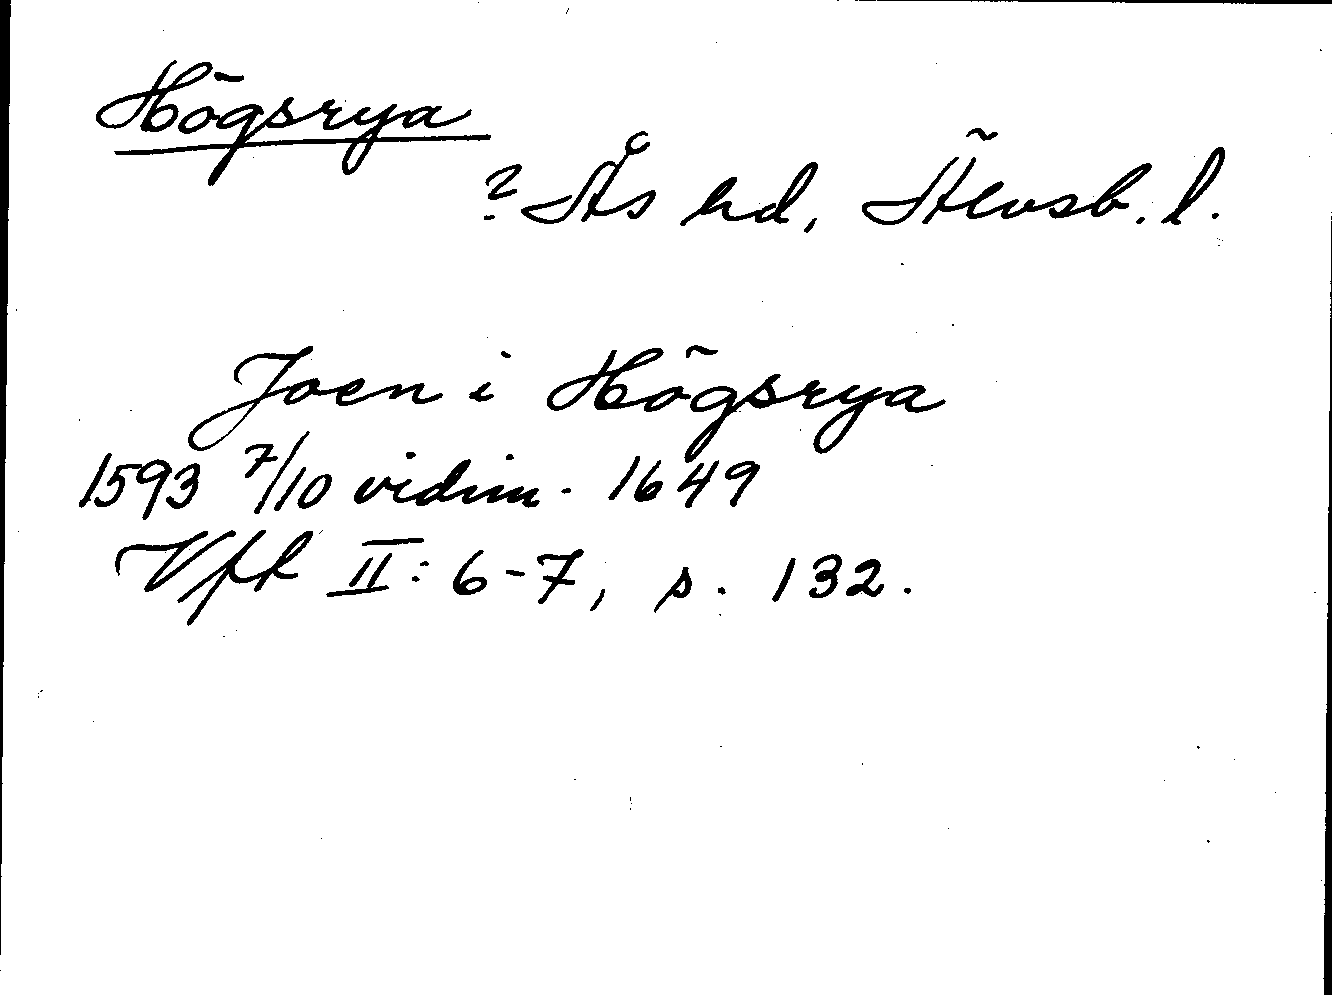 Högsrya
? Ås hd, Älvsb. l.
Joen i Högsrya
1593 7/10 vidim. 1649
Vfk II: 6-7, s. 132.